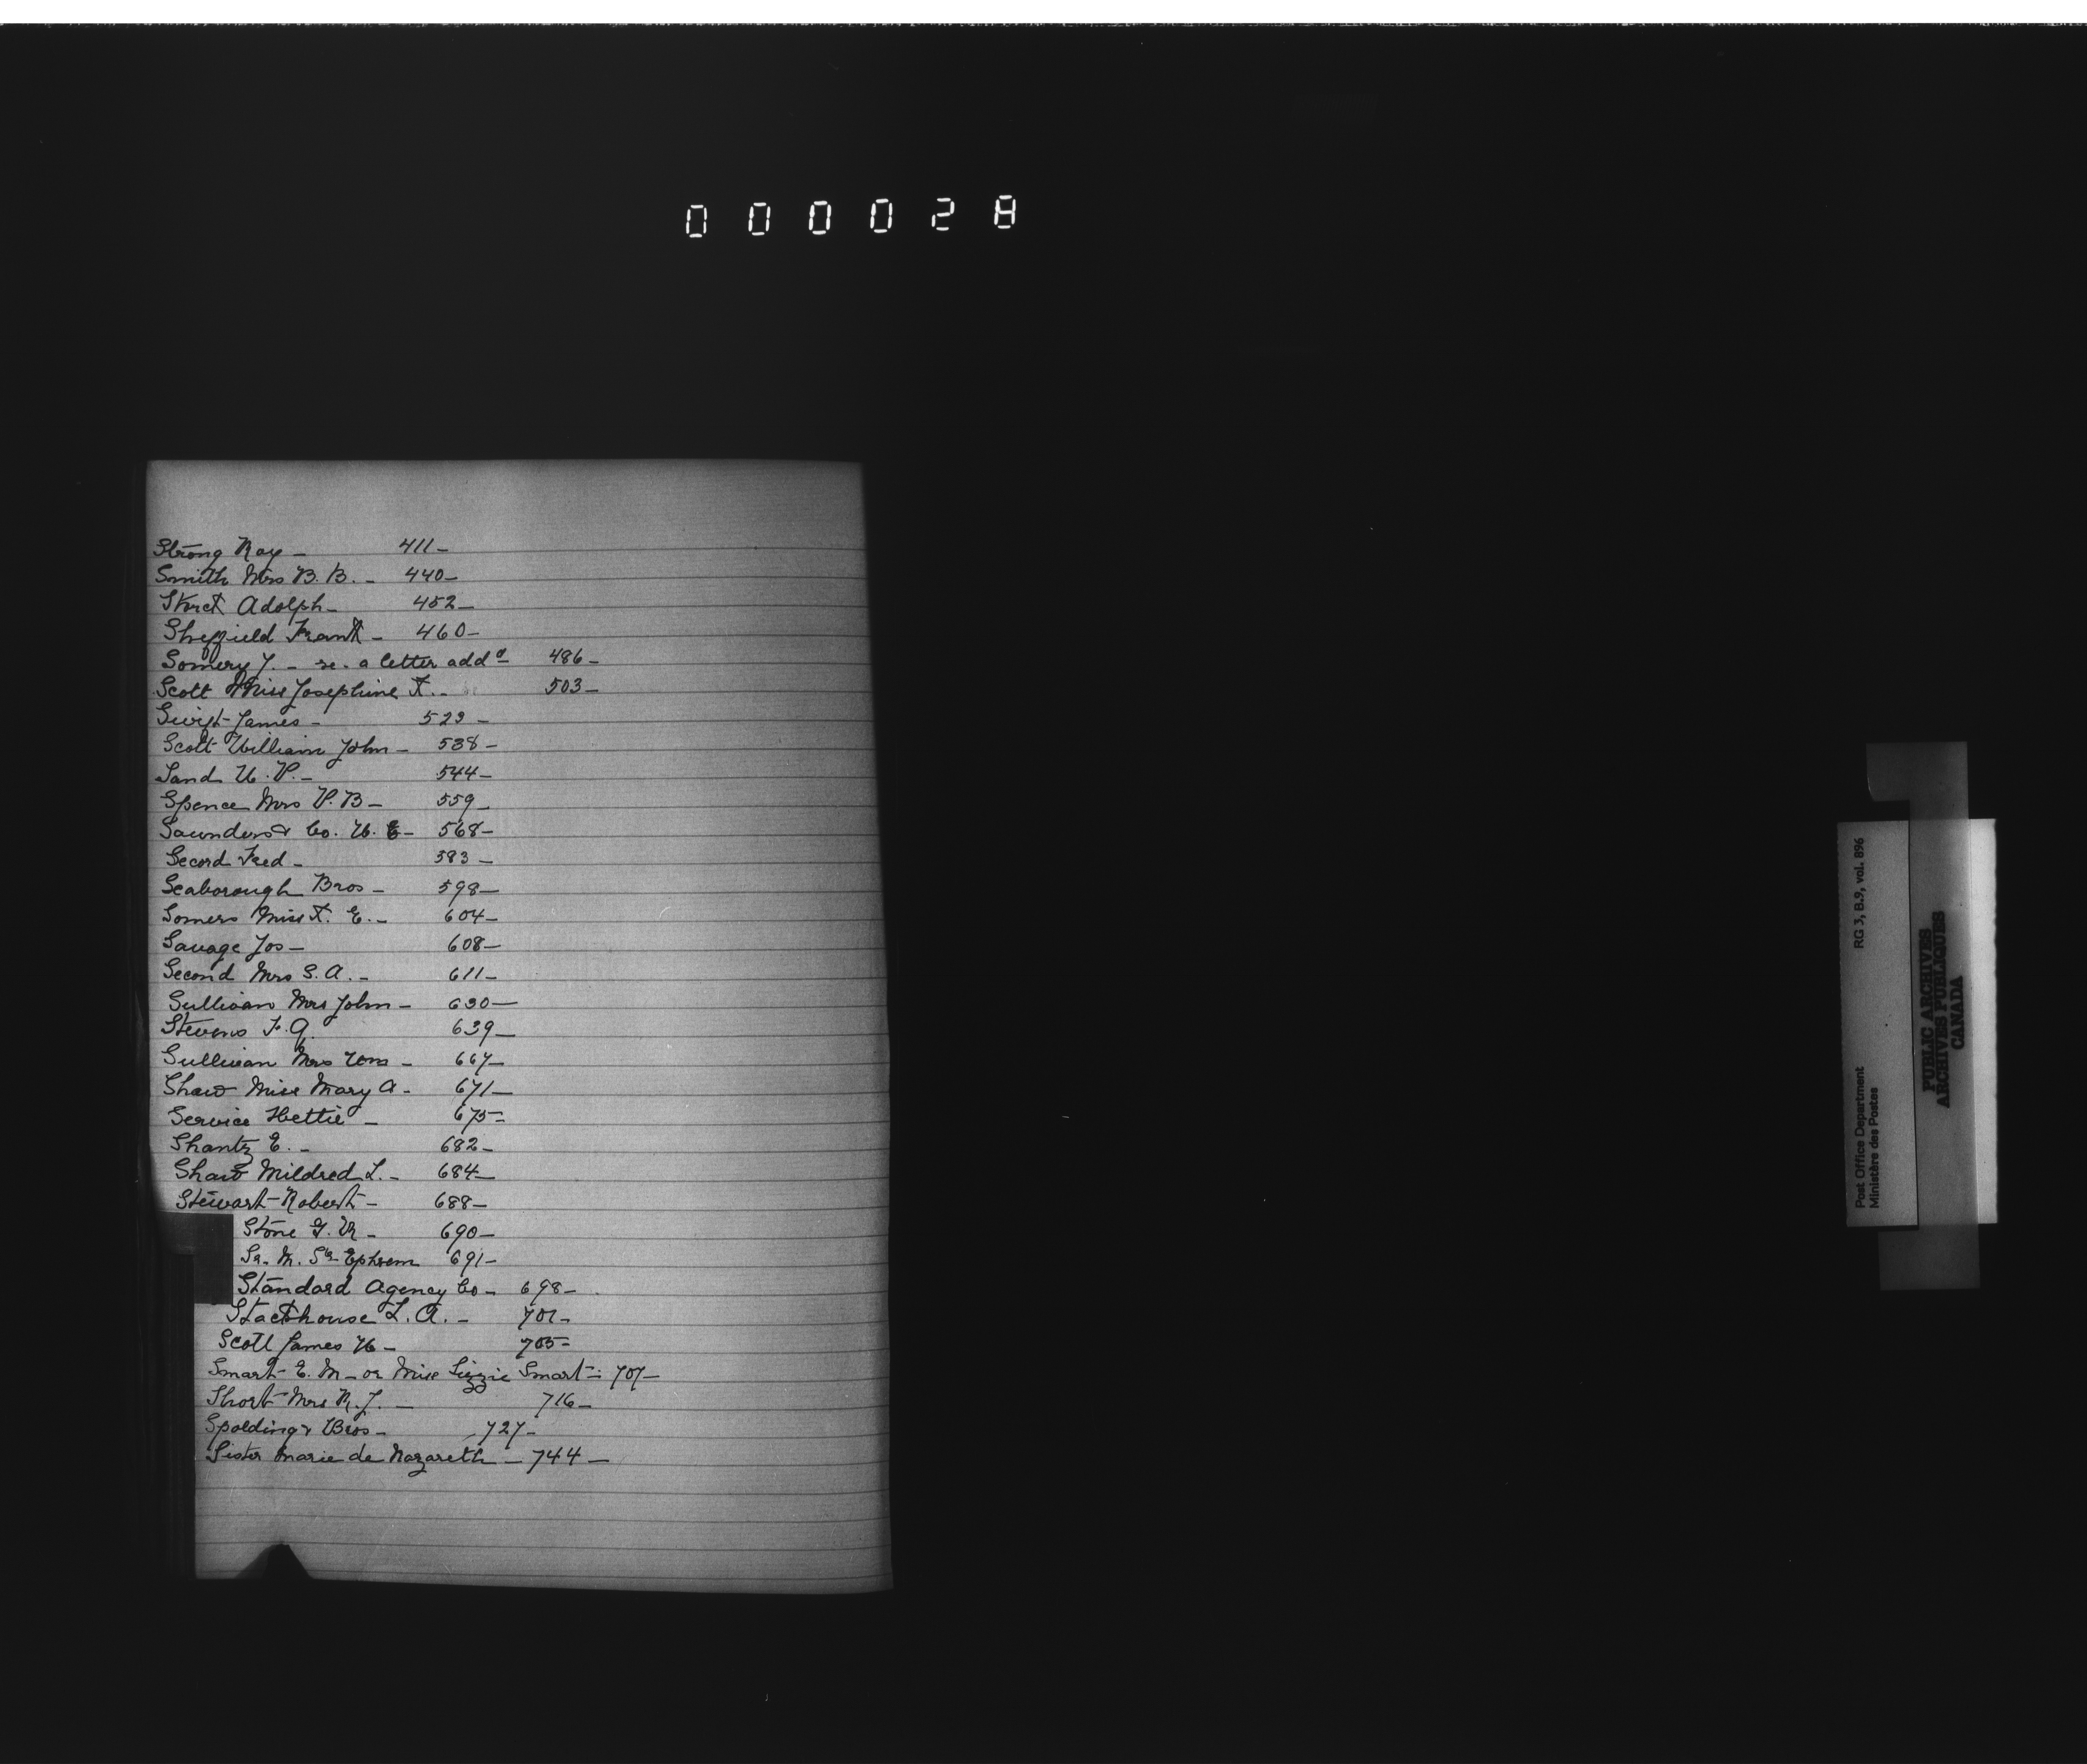 000028
Strong Ray - 411-
Smith Mrs B. B. - 440-
Adolph - 452-
Sheffield Frank - 460-
Somery J. - re. a letter addd - 486-
Scott Miss Josephine K. - 503-
Swift James - 529 -
Scott William John - 538-
Sand W. P. - 544-
Spence Mrs P. B - 559-
Saunders & Co. W. E - 568-
Secord Fred - 583 -
Seaborough Bros - 598-
Somers Miss K. E. - 604-
Savage Jos - 608-
Second Mrs S. A. - 611-
Sullivan Mrs John - 630-
Stevens F. G. 639-
Sullivan Mrs Wm - 667-
Shaw Miss Mary A - 671-
Service Hettie - 675-
Shantz E. - 682-
Shaw Mildred L. - 684-
Stewart Robert - 688-
Stone G. W - 690-
Sr. M. Ste Ephrem 691-
Standard Agency Co - 698-
Stackhouse L. A. - 701-
Scott James W - 705-
Smart E. M - or Miss Lizzie Smart - 707-
Short Mrs R. J. - 716-
Spolding & Bros - 727-
Sister Marie de Nazareth - 744-
Post Office Department RG 3, B.9, vol. 896
Ministère des Postes
PUBLIC ARCHIVES
ARCHIVES PUBLIQUES
CANADA